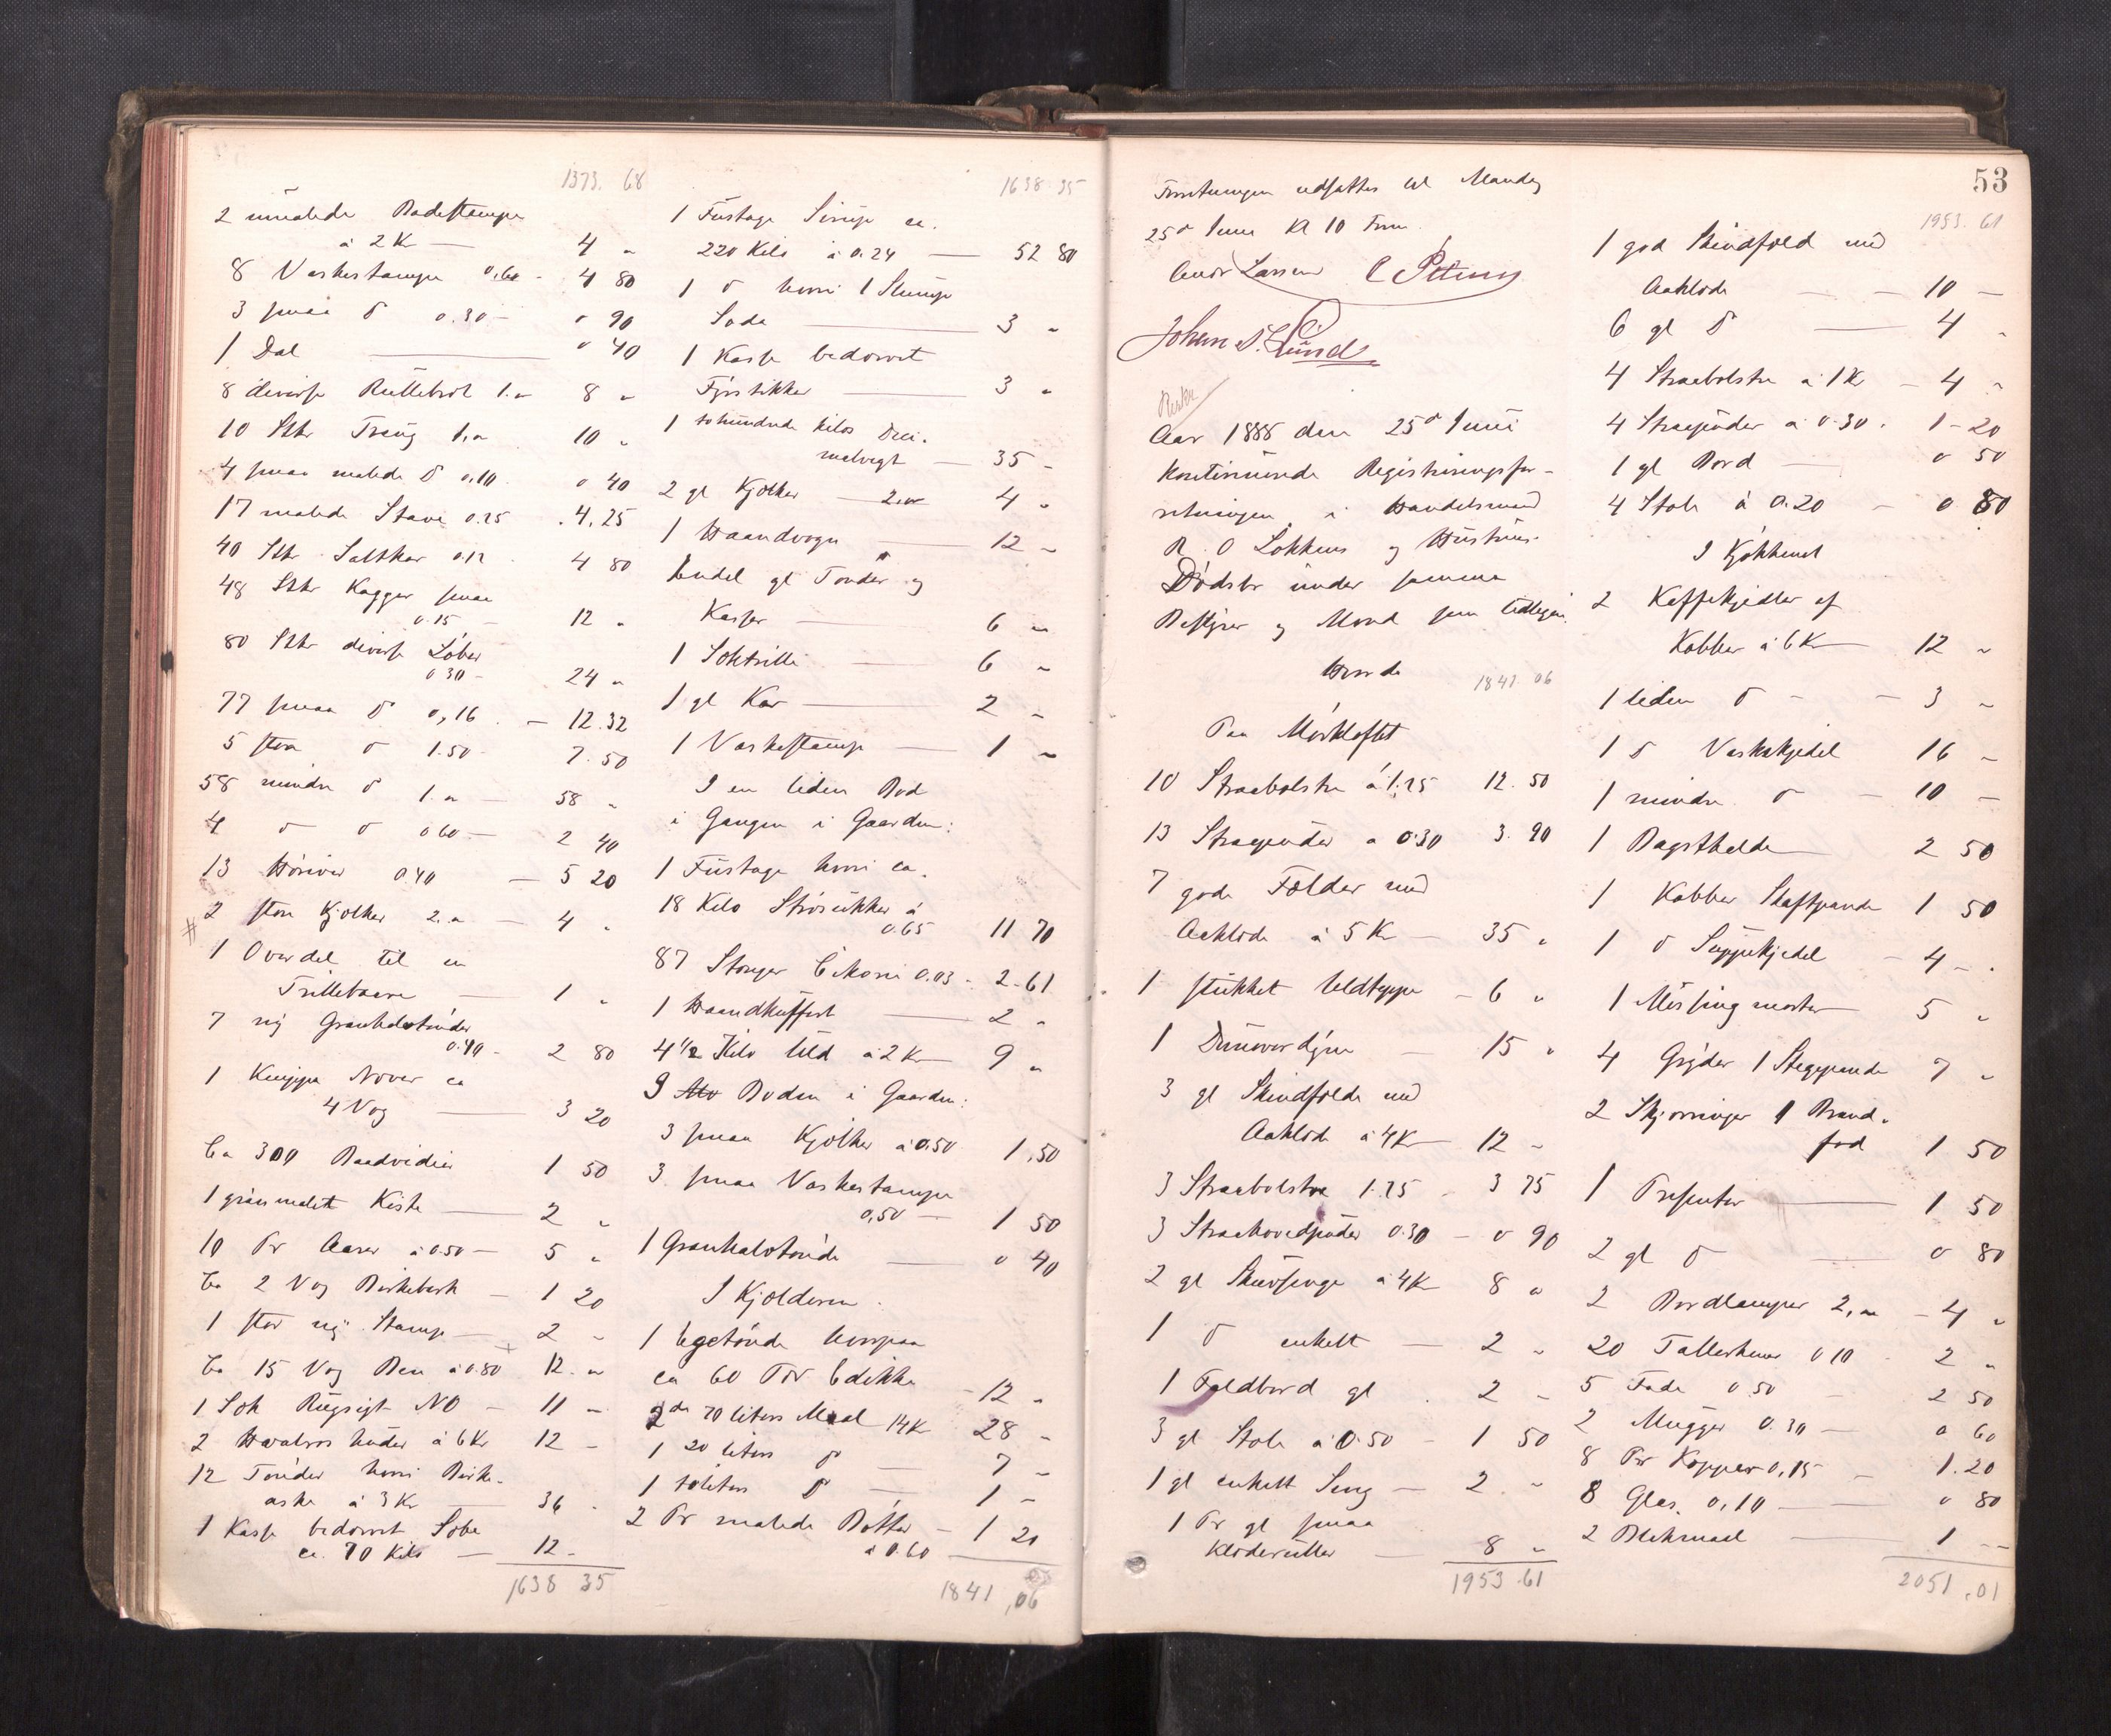 1373. 68
2 umalede Badestampe
à 2 K — 4 "
8 Vaskestampe 0.60 - 4 80
3 smaa d 0.30 - 0 90
1 Dal — 0 40
8 diverse Rullebrøt 1." 8 "
10 Stkr Traug 1." 10 "
4 smaa malede d 0.10 0 40
17 malede Stave 0.25 4.25
40 Stkr Saltkar 0.12 4 80
48 Stkr Kagger smaa
0.25 - 12 "
80 Stkr diverse Løber
0 30 - 24 "
77 smaa d 0,16 - 12.32
5 store d 1.50 - 7.50
58 mindre d 1." - 58 "
4 d d 0 60 - 2 40
13 Høriver 0.40 - 5 20
# 2 store Kjølker 2." - 4 "
1 Overdel til en
Trillebaare — 1 "
7 ny Granhalvtønder
0.40 - 2 80
1 Knippe Never ca
4 Vog — 3 20
Ca 300 Baandvidier 1 50
1 grønmalet Kiste — 2 "
10 Pr Aarer à 0.50 — 5 "
Ca 2 Vog Birkebark - 1 20
1 stor ny Stamp — 2 "
Ca 15 Vog Ben à 0.80 12. "
1 Sæk Rugsigt NO - 11 "
2 Hvalros huder à 6 Kr 12 -
12 Tønder hvori Birke-
aske à 3 Kr — 36 -
1 Kasse bedærvet Sæbe
ca. 70 Kilo — 12 -
1638 35
1638 35
1 Fustage Sirup ca.
220 Kilo à 0.24 — 52 80
1 d hvori 1 Slump
Soda — 3 "
1 Kasse bedærvet
Fyrstikker — 3 "
1 tohundrede kilos Deci-
malvægt — 35 -
2 gl Kjølker — 2." 4 "
1 Haandvogn — 12 "
Endel gl Tønder og
Kasser — 6 "
1 Sæktrille — 6 "
1 gl Kar — 2 "
1 Vaskestamp — 1 "
I en liden Bod
i Gangen i Gaarden:
1 Fustage hvori ca.
18 Kilo Strøsukker à
0.65 11 70
87 Stænger Cikorie 0.03 - 2.61
1 Haandkuffert — 2 "
4 1/2 Kilo Uld à 2 Kr 9 "
I Boden i Gaarden:
3 smaa Kjølker à 0.50 1.50
3 smaa Vaskestampe
0,50 — 1 50
1 Granhalvtønde — 0 40
I Kjælderen.
1 Egetønde hvorpaa
ca 60 Ptr Edikke - 12 "
2 de 70 liters Maal 14 Kr 28 "
1 20 liters d — 7 -
1 toliters d — 1 -
2 Pr malede Bøtter - 1 20
à 0.60
1841,06
53
Forretningen udsattes til Mandag
25d Juni Kl 10 Form.
Andr Larsen C Petersen
Johan S. Lund
Aar 1888 den 25d Juni
kontinuerede Registreringsfor-
retningen i Handelsmand
R. O Løkkens og Hustrus
Dødsbo under samme
Bestyrer og Mænd som tidligere.
Hvorda 1841.06
Paa Mørkloftet
10 Straabolstre à 1.25 12.50
13 Straaputer à 0.30 3.90
7 gode Fælder med
Aaklæde à 5 Kr — 35 "
1 stukket Uldteppe - 6 "
1 Dunoverdyne — 15 "
3 gl Skindfælde med
Aaklæde à 4 Kr — 12 -
3 Straabolstre 1.25 - 3 75
3 Straahovedputer 0.30 - 0 90
2 gl Skuvsenge à 4 Kr 8 "
1 d enkelt — 2 "
1 Foldbord gl . 2 -
3 gl Stole à 0.50 - 1 50
1 gl enkelt Seng — 2 "
1 Pr gl smaa
Klæderuller — 8 "
1953.61
1953.61
1 god Skindfæld med
Aaklæde — 10 —
6 gl d — 4 "
4 Straabolstre à 1 Kr - 4 "
4 Straaputer à 0.30 . 1-20
1 gl Bord — 0 50
4 Stole à 0.20 - 0 80
I Kjøkkenet
2 Kaffekjedler af
Kobber à 6 Kr 12 "
1 liden d - - 3 "
1 d Vaskekjedel 16 -
1 mindre d - 10 -
1 Bagsthelde 2 50
1 Kobber Skaftpande 1 50
1 d Suppekjedel - 4 - .
1 Messingmorter 5 "
4 Gryder 1 Stegepande 7 "
2 Skjæringer 1 Brand-
fod 1 50
1 Presenter — 1 50
2 gl d — 0 80
2 Bordlamper 2," - 4 "
20 Tallerkener 0 10 - 2 "
5 Fade 0 50 - 2 50
2 Mugger 0.30 — 0 60
8 Par Kopper 0,15 - 1.20
8 Glas 0,10 — 0 80
2 Blikmaal — 1 -
2051.01